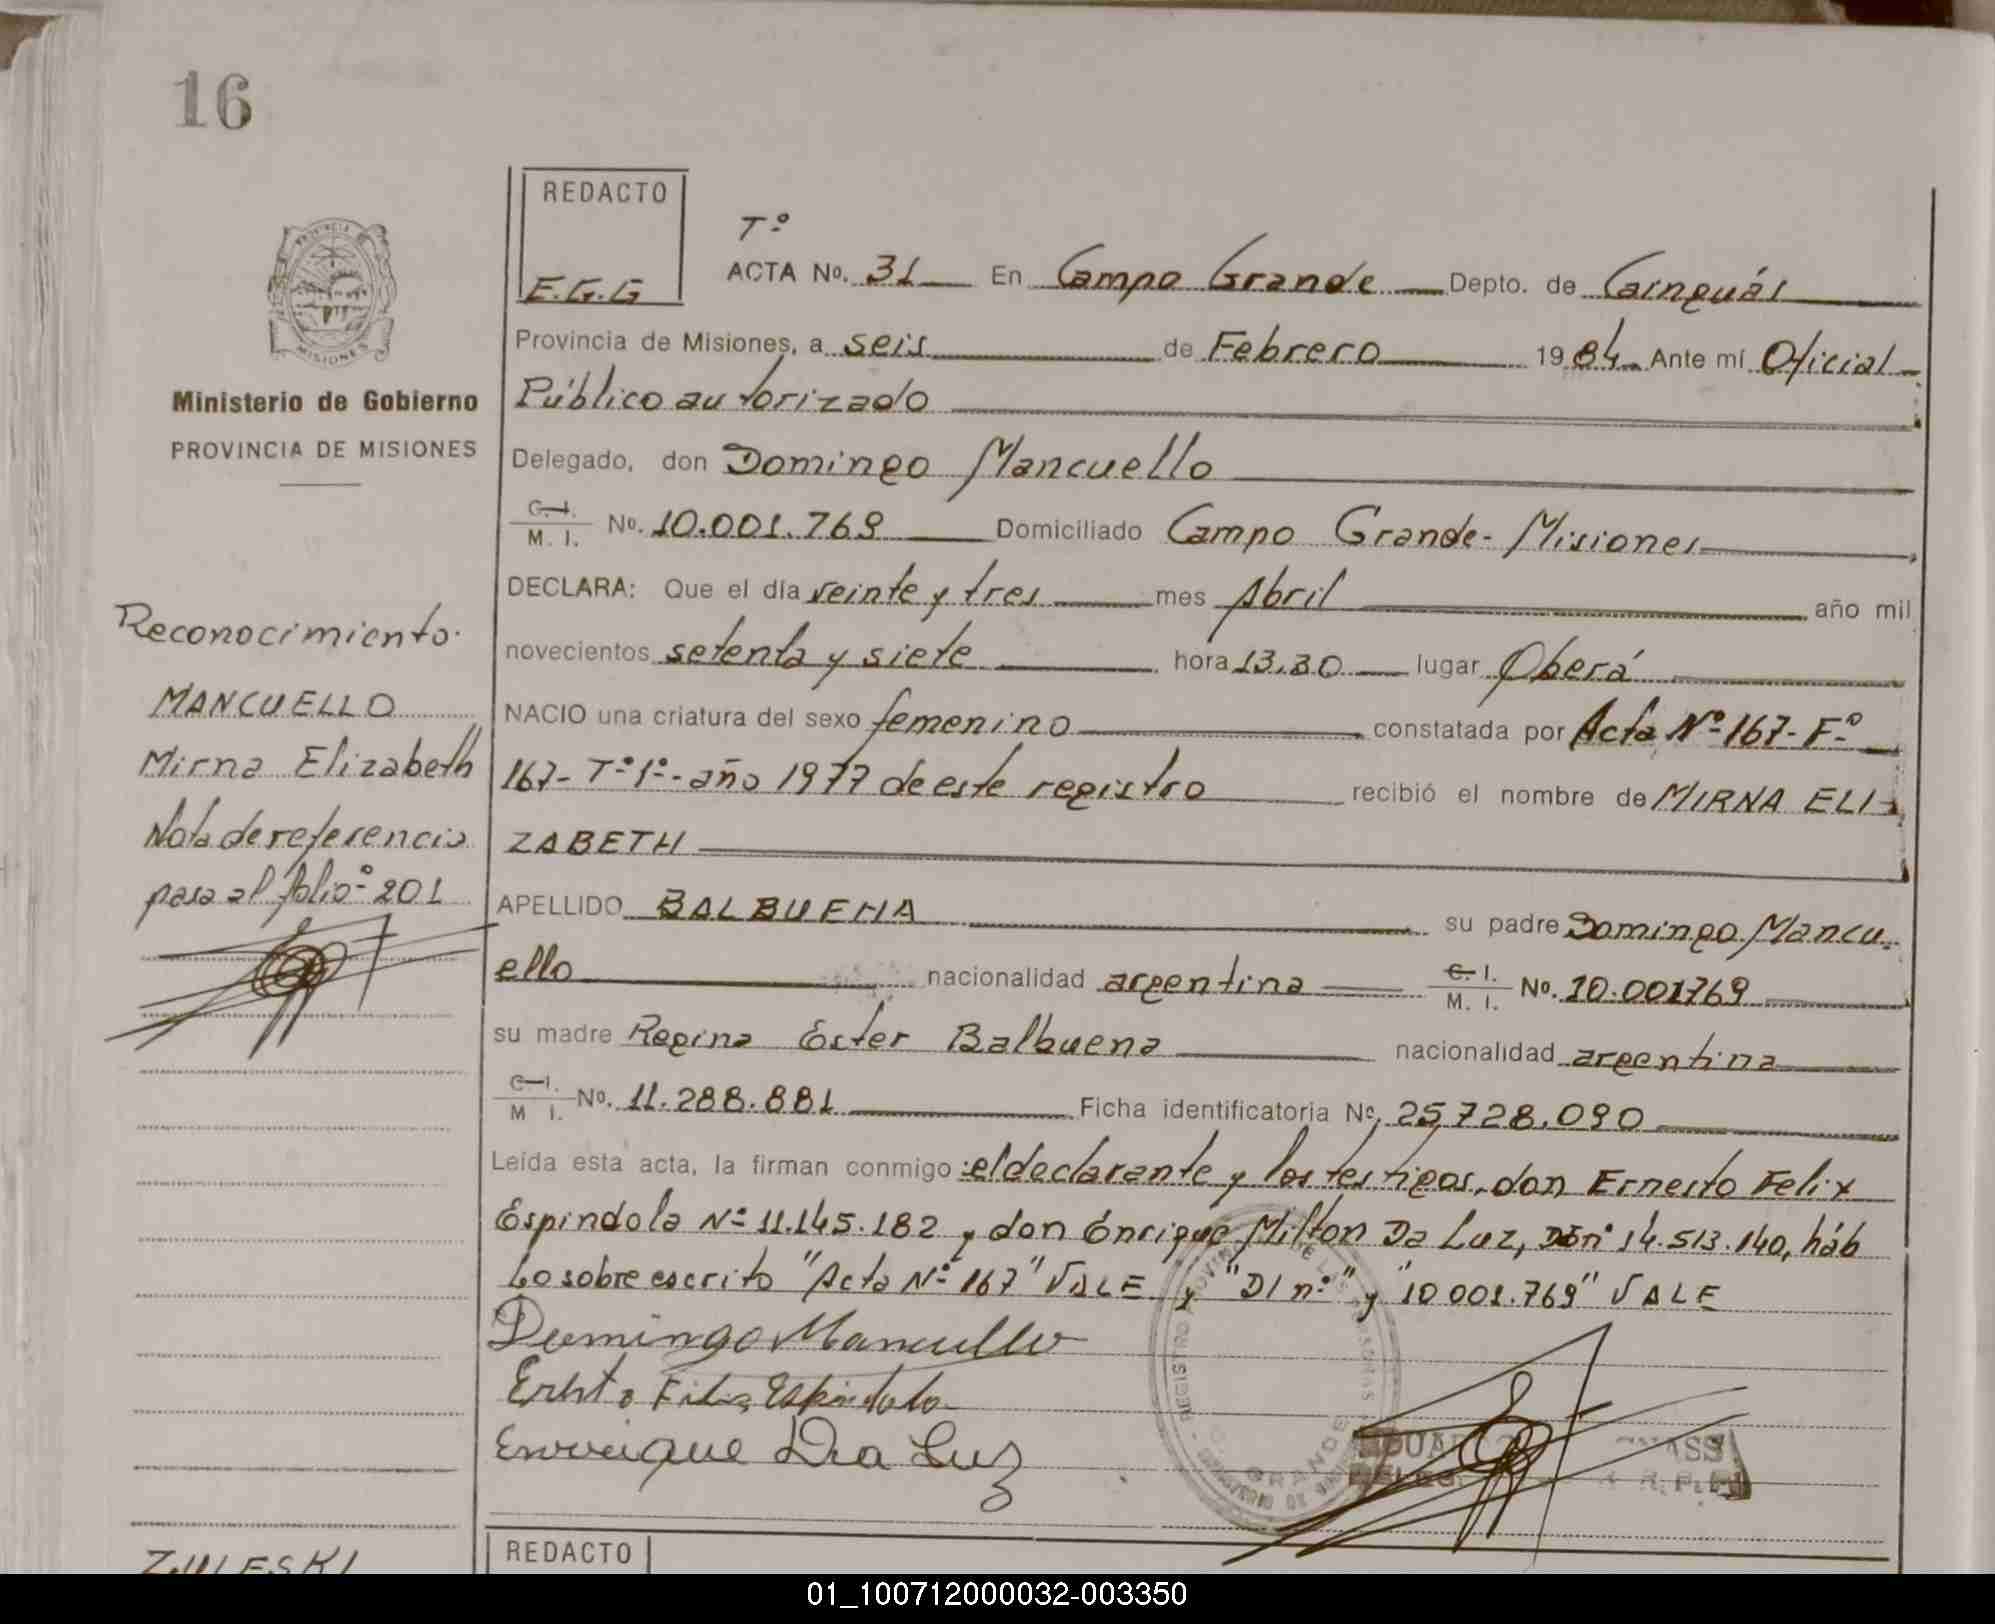 16
REDACTO
E.G.G
Tº
ACTA No. 31 En Campo Grande Depto. de Cainguás
Provincia de Misiones, a seis de Febrero 1984 Ante mí Oficial
Público autorizado
Ministerio de Gobierno
PROVINCIA DE MISIONES
Delegado, don Domingo Mancuello
C. I. M. I. No. 10.001.769 Domiciliado Campo Grande- Misiones
DECLARA: Que el día veinte y tres mes Abril año mil
novecientos setenta y siete hora 13.30 lugar Oberá
NACIO una criatura del sexo femenino constatada por Acta Nº 167- Fº
167- Tº 1º- año 1977 de este registro recibió el nombre de MIRNA ELI-
ZABETH
APELLIDO BALBUENA su padre Domingo Mancu-
ello nacionalidad argentina C. I. M. I. No. 10.001769
su madre Regina Ester Balbuena nacionalidad argentina
C. I. M I. No. 11.288.881 Ficha identificatoria Nº. 25,728.090
Leída esta acta, la firman conmigo: el declarante y los testigos, don Ernesto Felix
Espindola Nº 11.145.182 y don Enrique Milton Da Luz, DI nº 14.513.140, háb
Lo sobre escrito "Acta Nº 167" VALE y "DI nº" y "10 001.769" VALE
Domingo Mancuello
Ernesto Felix Espindola
Enrrique Da Luz
Reconocimiento.
MANCUELLO
Mirna Elizabeth
Nota de referencia
pasa al folio º 201
MISIONES
GRANDE
REDACTO
ZULESKI
01_100712000032-003350